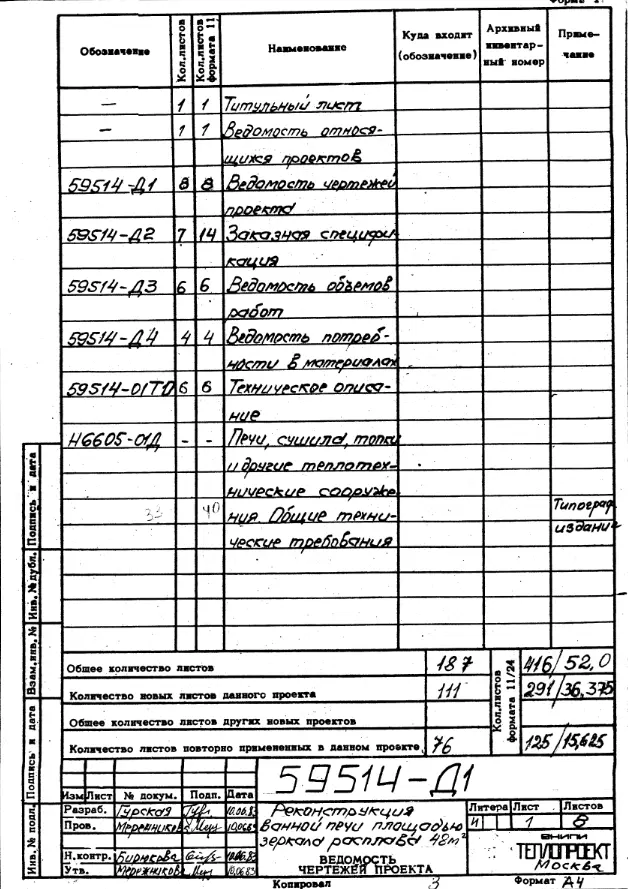 Обозначение
Кол.листов
Кол.листов формата 11
Наименование
Куда входит (обозначение)
Архивный инвентарный номер
Приме-
чание
— 1 1 Титульный лист
— 1 1 Ведомость относя-
щихся проектов
59514-Д1 8 8 Ведомость чертежей
проекта
59514-Д2 7 14 Заказная специфи-
кация
59514-Д3 6 6 Ведомость объемов
работ
59514-Д4 4 4 Ведомость потреб-
ности в материалах
59514-01ТО 6 6 Техническое описа-
ние
Н6605-01Д - - Печи, сушила, топки
и другие теплотех-
нические сооруже-
33 40 ния. Общие техни-
ческие требования
Типограф
издани-
Общее количество листов 187
Количество новых листов данного проекта 111
Общее количество листов других новых проектов
Количество листов повторно примененных в данном проекте 76
Кол.листов формата 11/24
416/52,0
291/36,375
125/15,625
59514-Д1
Изм Лист № докум. Подп. Дата
Разраб. Гурская 10.06.83
Пров. Мережников 10.06.83
Н.контр. Бирюкова 10.06.83
Утв. Мережников 10.06.83
Реконструкция
ванной печи площадью
зеркала расплава 48м²
ВЕДОМОСТЬ
ЧЕРТЕЖЕЙ ПРОЕКТА
Литера Лист Листов
И 1 8
ВНИПИ
ТЕПЛОПРОЕКТ
Москва
Копировал 3 Формат А4
Инв. № подл.
Подпись и дата
Взам.инв. №
Инв. № дубл.
Подпись и дата